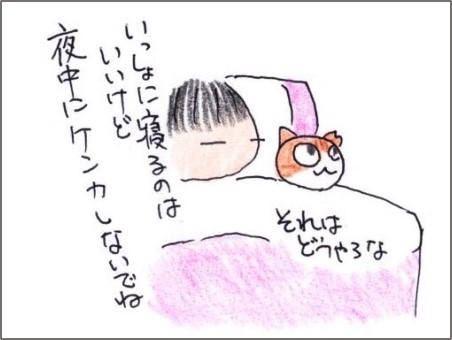 いっしょに寝るのは
いいけど
夜中にケンカしないでね
それは
どうやろな